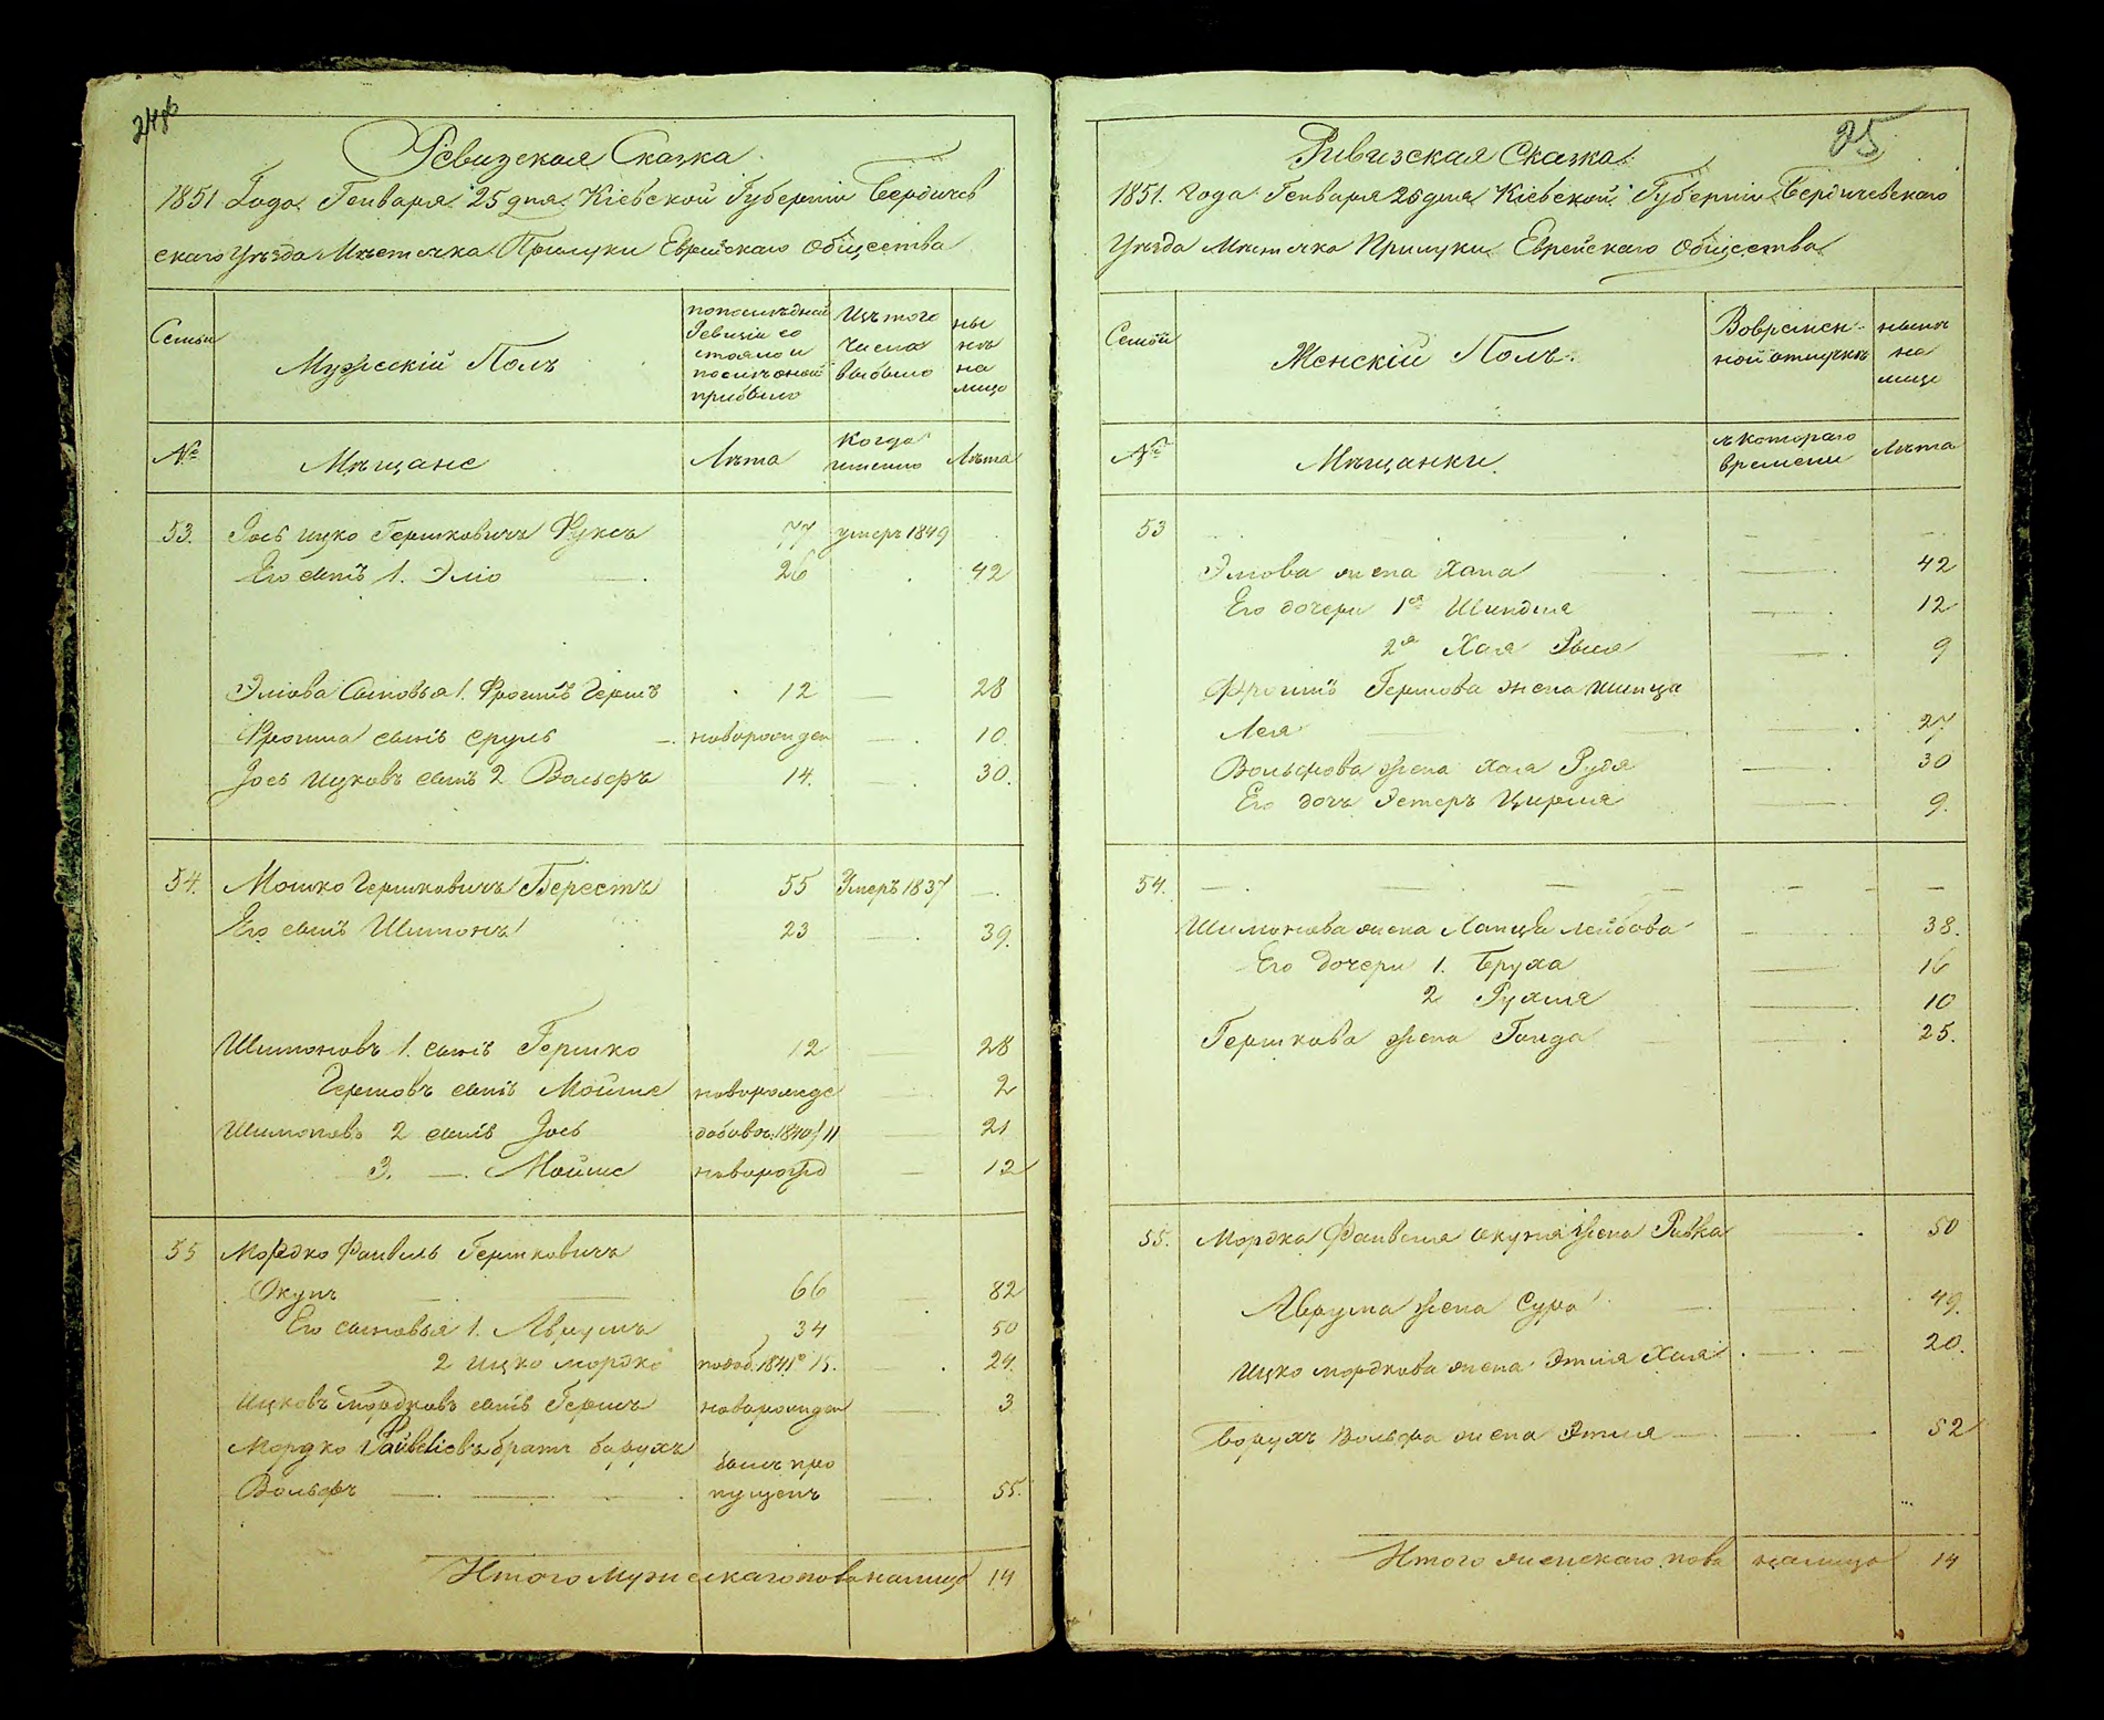 24об
Ревизская Сказка
1851 Года Генваря 25 дня Кіевской Губерніи Бердичев
скаго Уѣзда Мѣстечка Прилуки Еврейскаго Общества
Семьи
Мужескій Полъ
по послѣдней Ревизіи состояло и послѣ оной прибыло
Изъ того числа выбыло
ны нѣ на лицо
№
Мѣщане
Лѣта
Когда именно
Лѣта
53. Іось Ицко Гершковичъ Фуксъ 77 умеръ 1849
Его сынъ 1. Эліо 26 42
Эліова Сыновья 1. Фроимъ Гершъ 12 28
Фроима сынъ Сруль новорожден 10.
Іось Ицковъ сынъ 2 Вольфъ 14. 30.
54. Мошко Гершковичъ Берестъ 55 Умеръ 1837
Его сынъ Шимонъ 23 39.
Шимоновъ 1. сынъ Гершко 12 28
Гершовъ сынъ Мойше новорожде 2
Шимоновъ 2 сынъ Іось добавоч. 1840/11 21
3. — Мойше новорожд 12
55 Мордко Файвель Гершковичъ
Окунь 66 82
Его сыновья 1. Аврумъ 34 50
2 Ицко Мордко подоб. 1841º 15. 24.
Ицковъ Мордковъ сынъ Гершъ новорожден 3
Мордко Файвелювъ братъ Борухъ
Вольфъ былъ про пущенъ 55.
Итого мужескаго пола на лицо 14
25
Ривизская Сказка
1851. Года Генваря 25 дня Кіевской Губерніи Бердичевскаго
Уѣзда Мѣстечка Прилуки Еврейскаго Общества
Семьи
Женскій Полъ.
Во времен ной отлучкѣ
нынѣ на лицо
№
Мѣщанки.
съ котораго времени
Лѣта
53
Эліова жена Хана 42
Его дочери 1я Шиндля 12
2я Хая Рыся 9
Фроимъ Гершова жена Шинца
Лея 27
Вольфова жена Хая Рудя 30
Его дочь Эстеръ Цирля 9.
54.
Шимонова жена Ланца Лейбова 38.
Его дочери 1. Бруха 16
2 Рухля 10
Гершкова жена Голда 25.
55. Мордка Файвеля Окуня жена Ривка 50
Аврума жена Сура 49.
Ицко Мордкова жена Этля Хая 20.
Борухъ Вольфа жена Этля 52
Итого женскаго пола на лицо 14